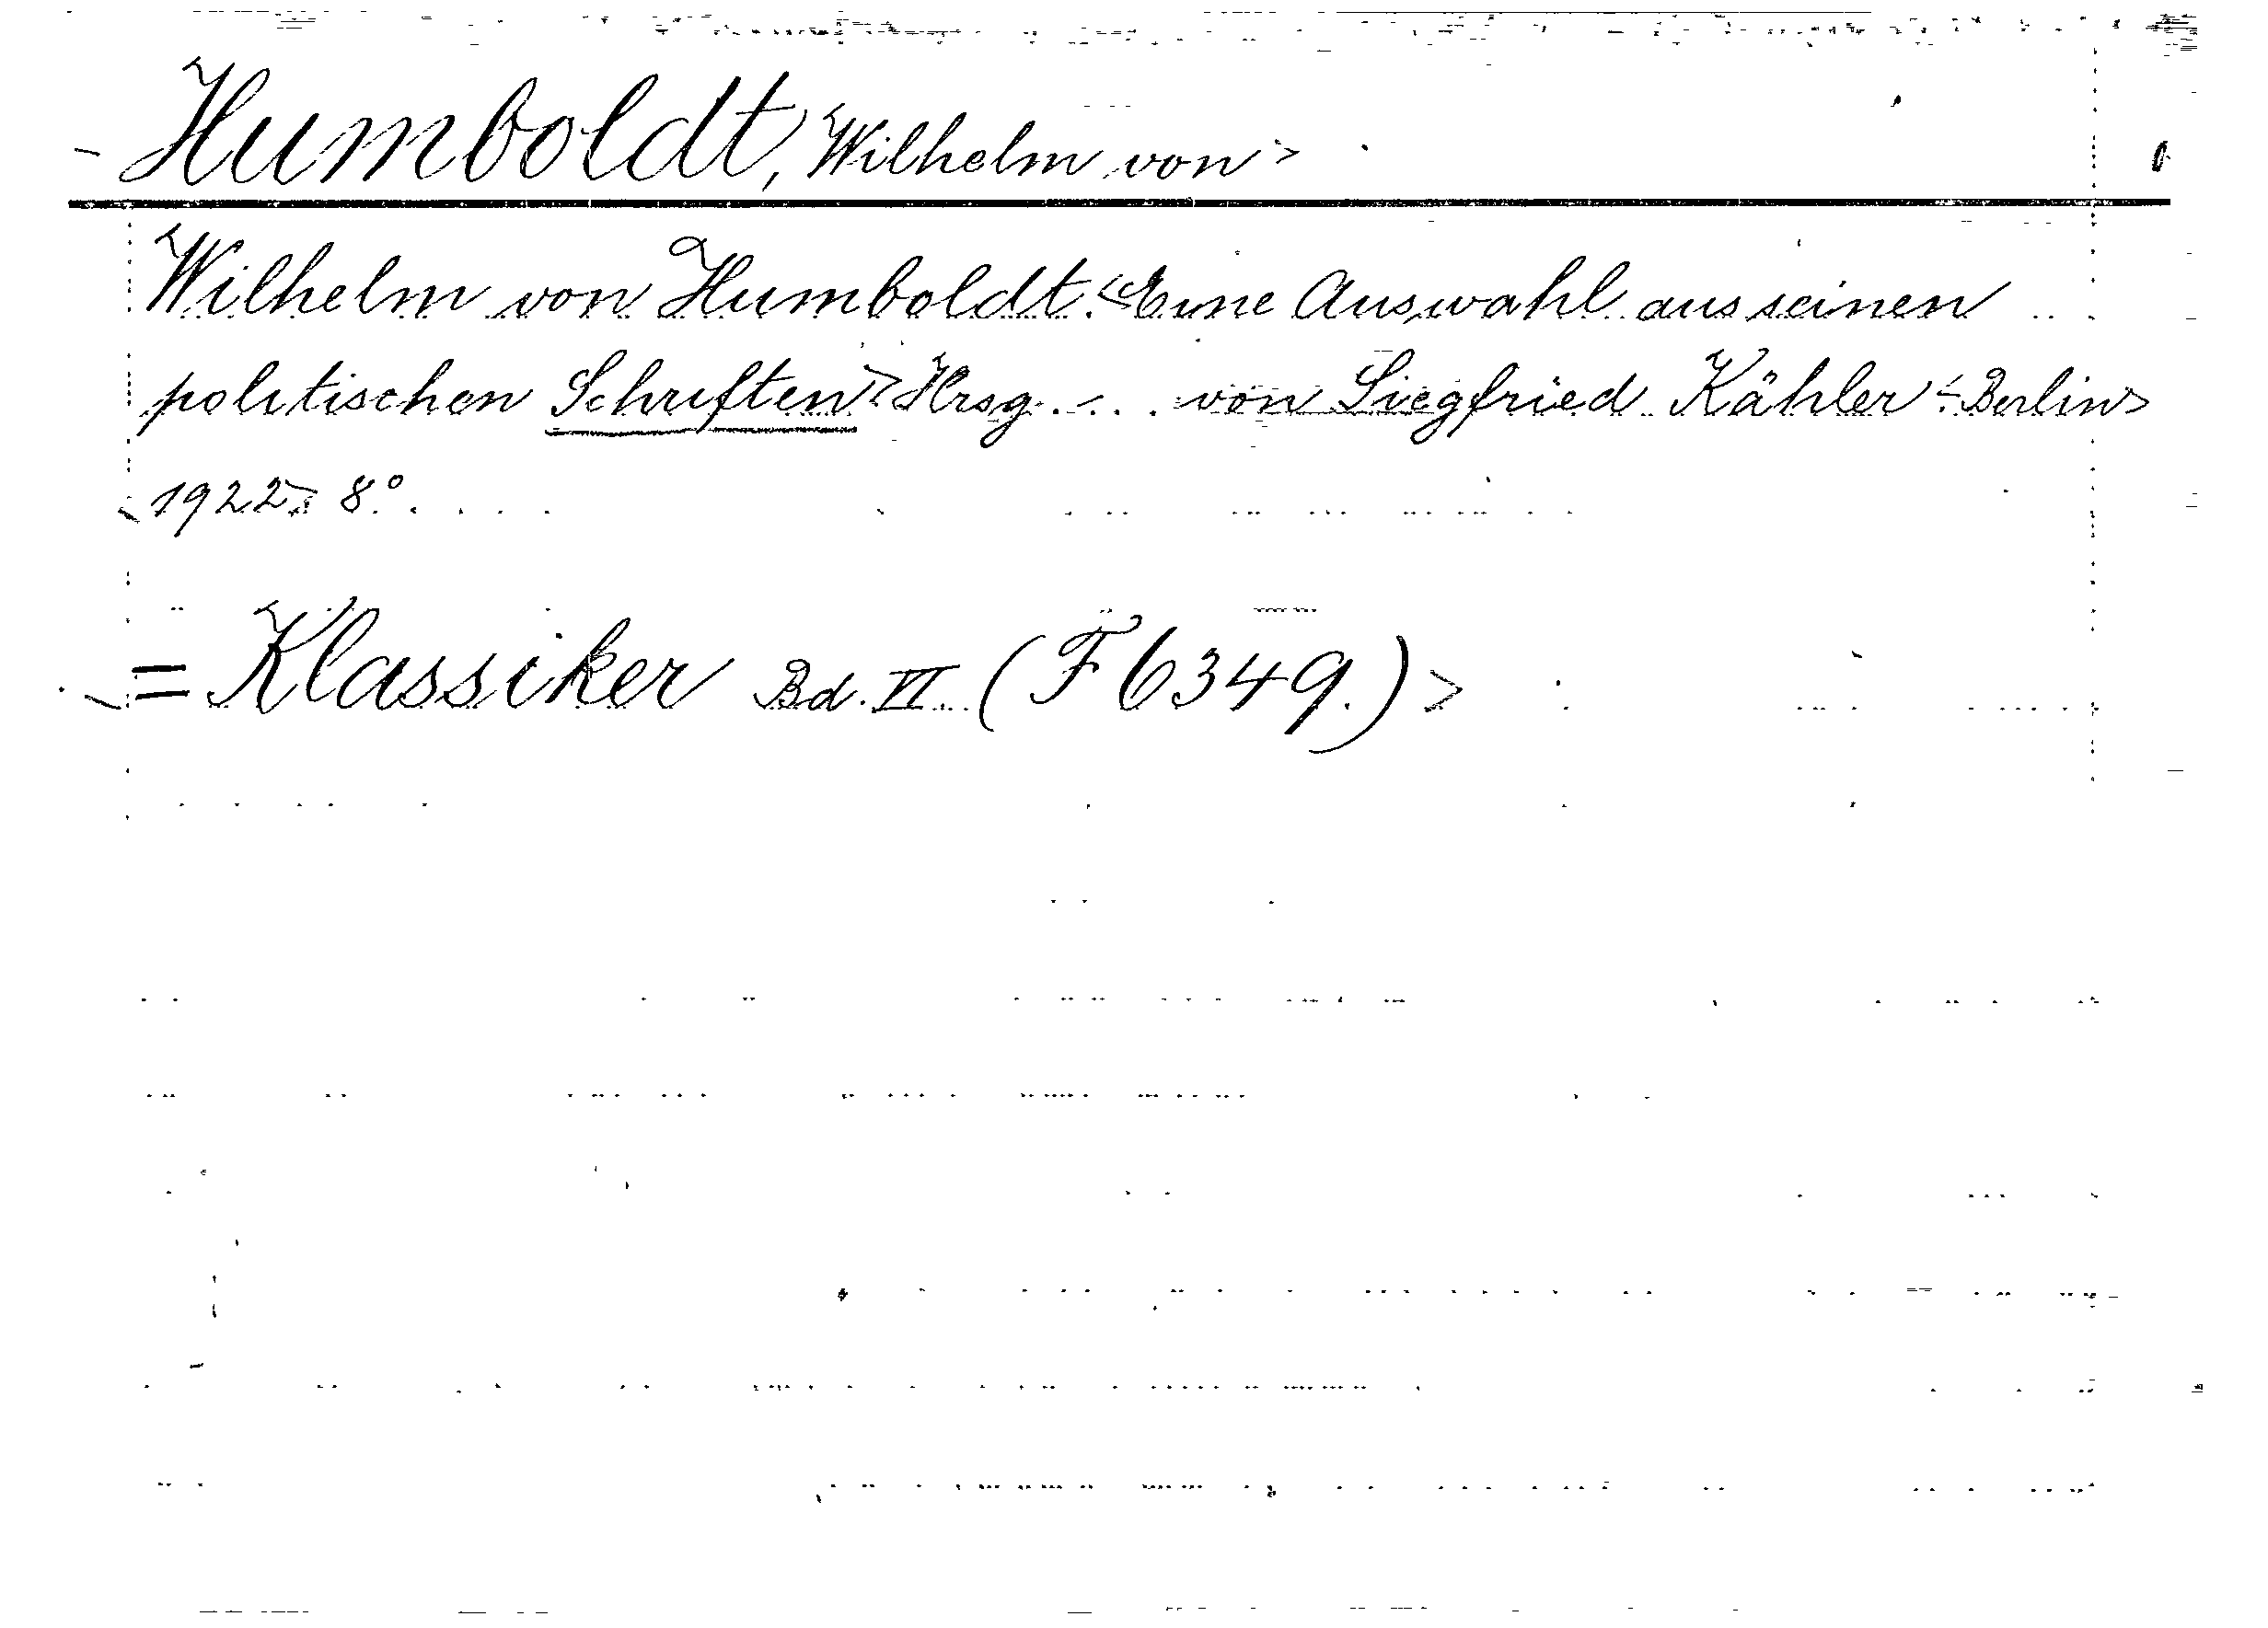 Humboldt, Wilhelm von>
Wilhelm von Humboldt. <Eine Auswahl aus seinen
politischen Schriften> Hrsg. ... von Siegfried Kähler. <Berlin>
1922> 8°.
= Klassiker Bd. VI. (F 6349.)>